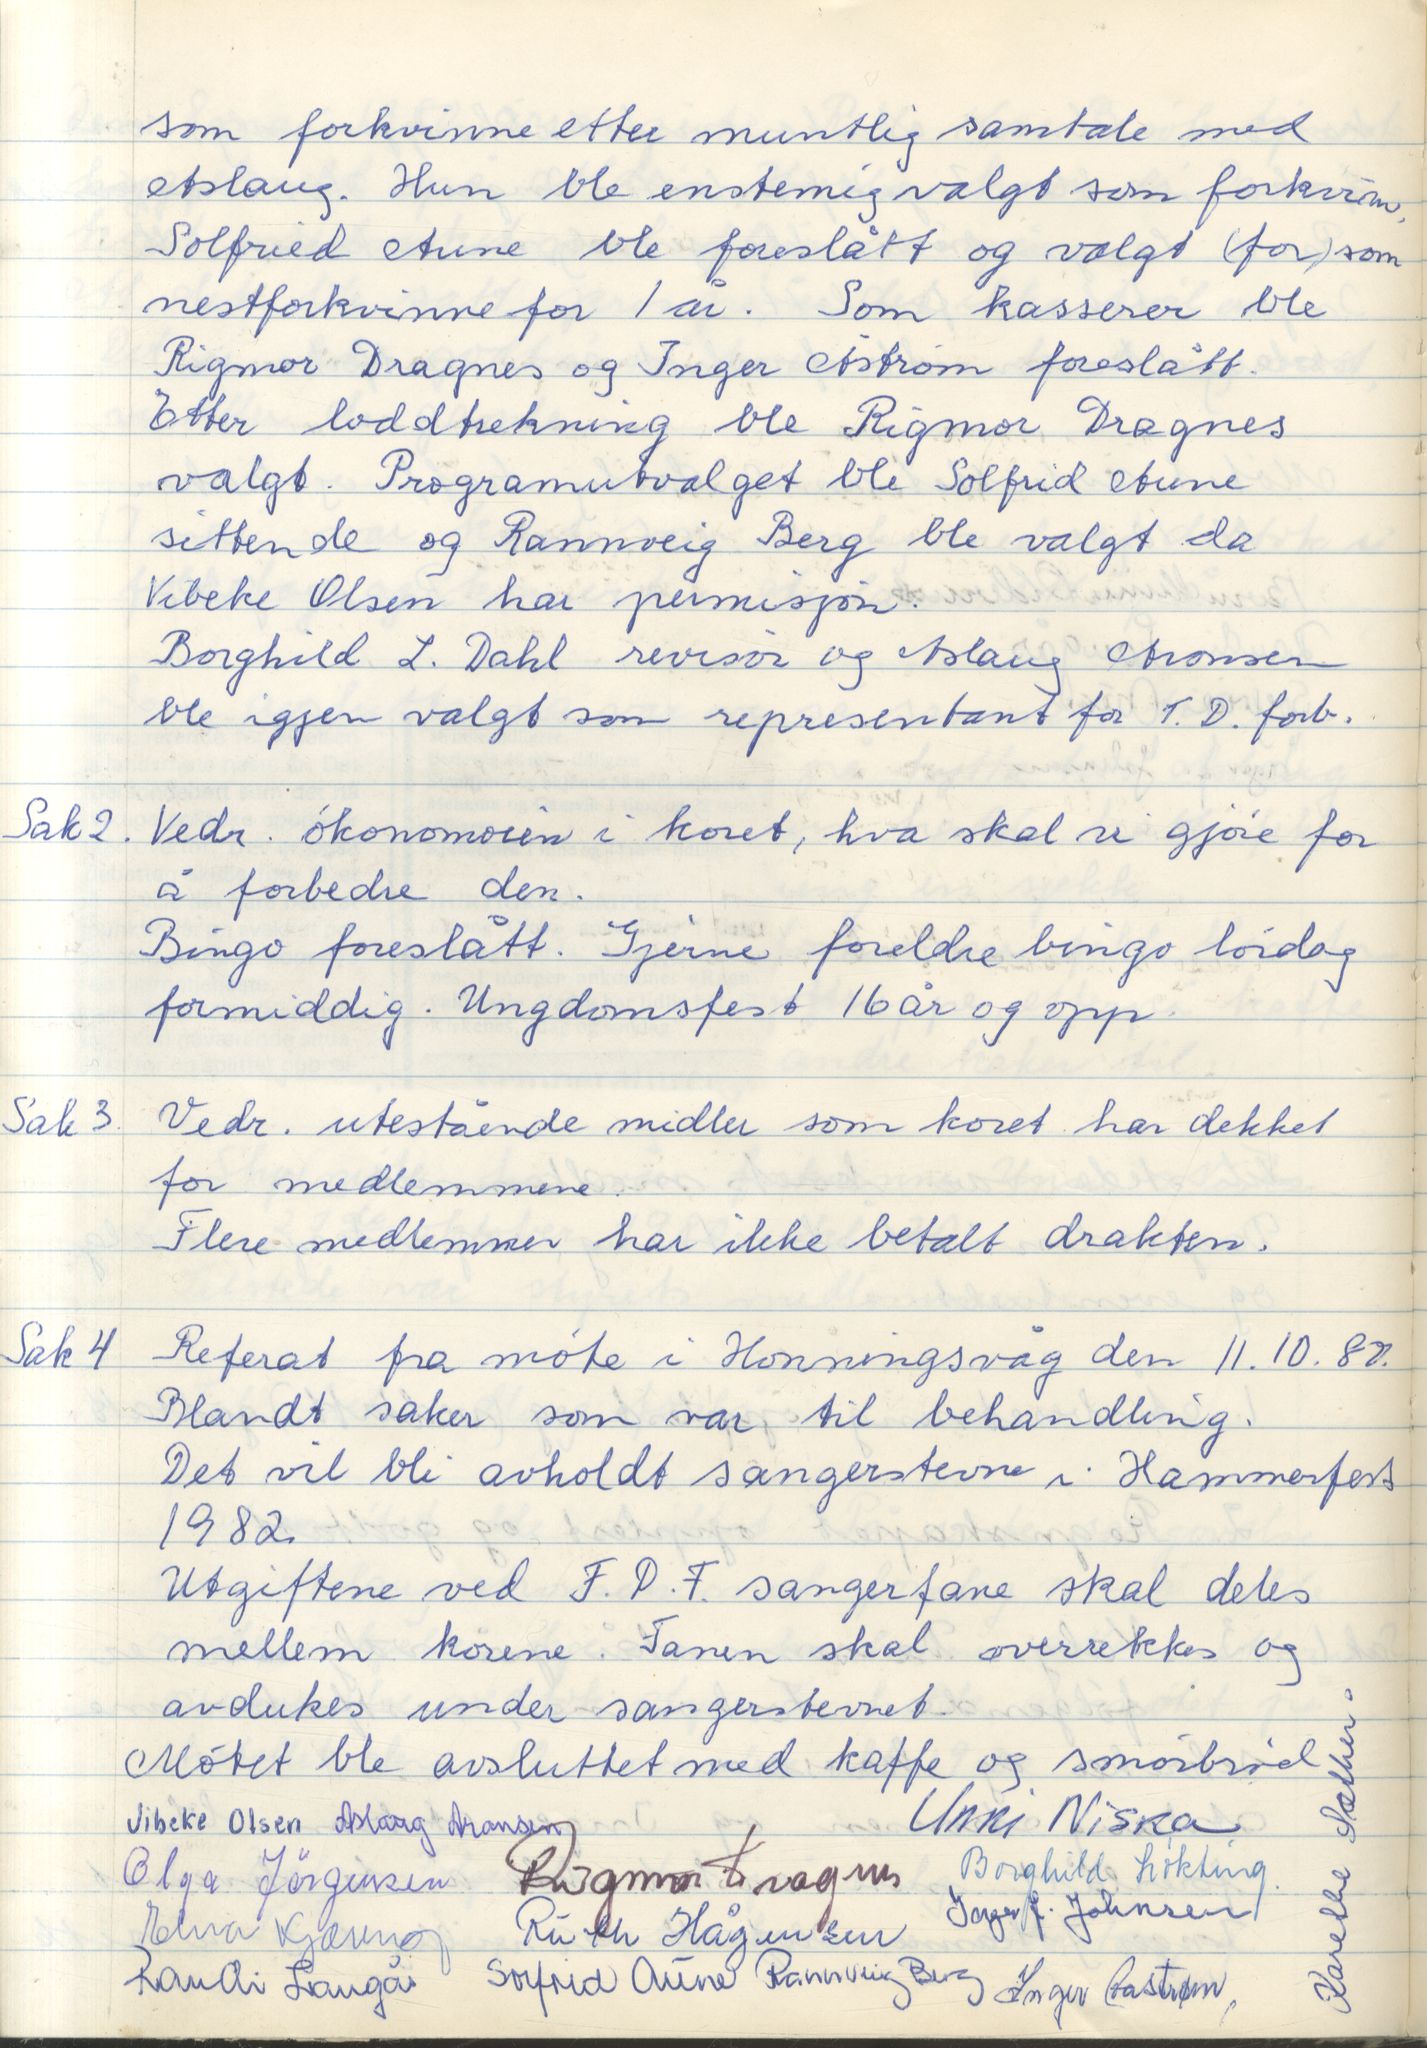 som forkvinne etter muntlig samtale med
Aslaug. Hun ble enstemig valgt som forkvinn,
Solfried Aune ble foreslått og valgt (for) som
nestforkvinne for 1 år. Som kasserer ble
Rigmor Dragnes og Inger Åstrøm foreslått.
Etter loddtrekning ble Rigmor Dragnes
valgt. Programutvalget ble Solfrid Aune
sittende og Rannveig Berg ble valgt da
Vibeke Olsen har permisjon.
Borghild L. Dahl revisor og Aslaug Aronsen
ble igjen valgt som representant for T. D. forb.
Sak 2. Vedr. økonomoien i koret, hva skal vi gjøre for
å forbedre den.
Bingo foreslått. Gjerne foreldre bingo lørdag
formiddig. Ungdomsfest 16 år og opp.
Sak 3. Vedr. utestående midler som koret har dekket
for medlemmene.
Flere medlemmer har ikke betalt drakten.
Sak 4 Referat fra møte i Honningsvåg den 11. 10. 80.
Blandt saker som var til behandling.
Det vil bli avholdt sangerstevne i Hammerfest
1982.
Utgiftene ved F. D. F. sangerfane skal deles
mellem korene. Fanen skal overrekkes og
avdukes under sangerstevnet.
Møtet ble avsluttet med kaffe og smørbrød
Vibeke Olsen Aslaug Aronsen Unni Niska
Olga Jørgensen Rigmor Dragnes Borghild Løkting
Elna Inger J. Johnsen
Ruth Hågensen
Randi Langås Solfrid Aune Rannveig Berg Inger Aastrøm